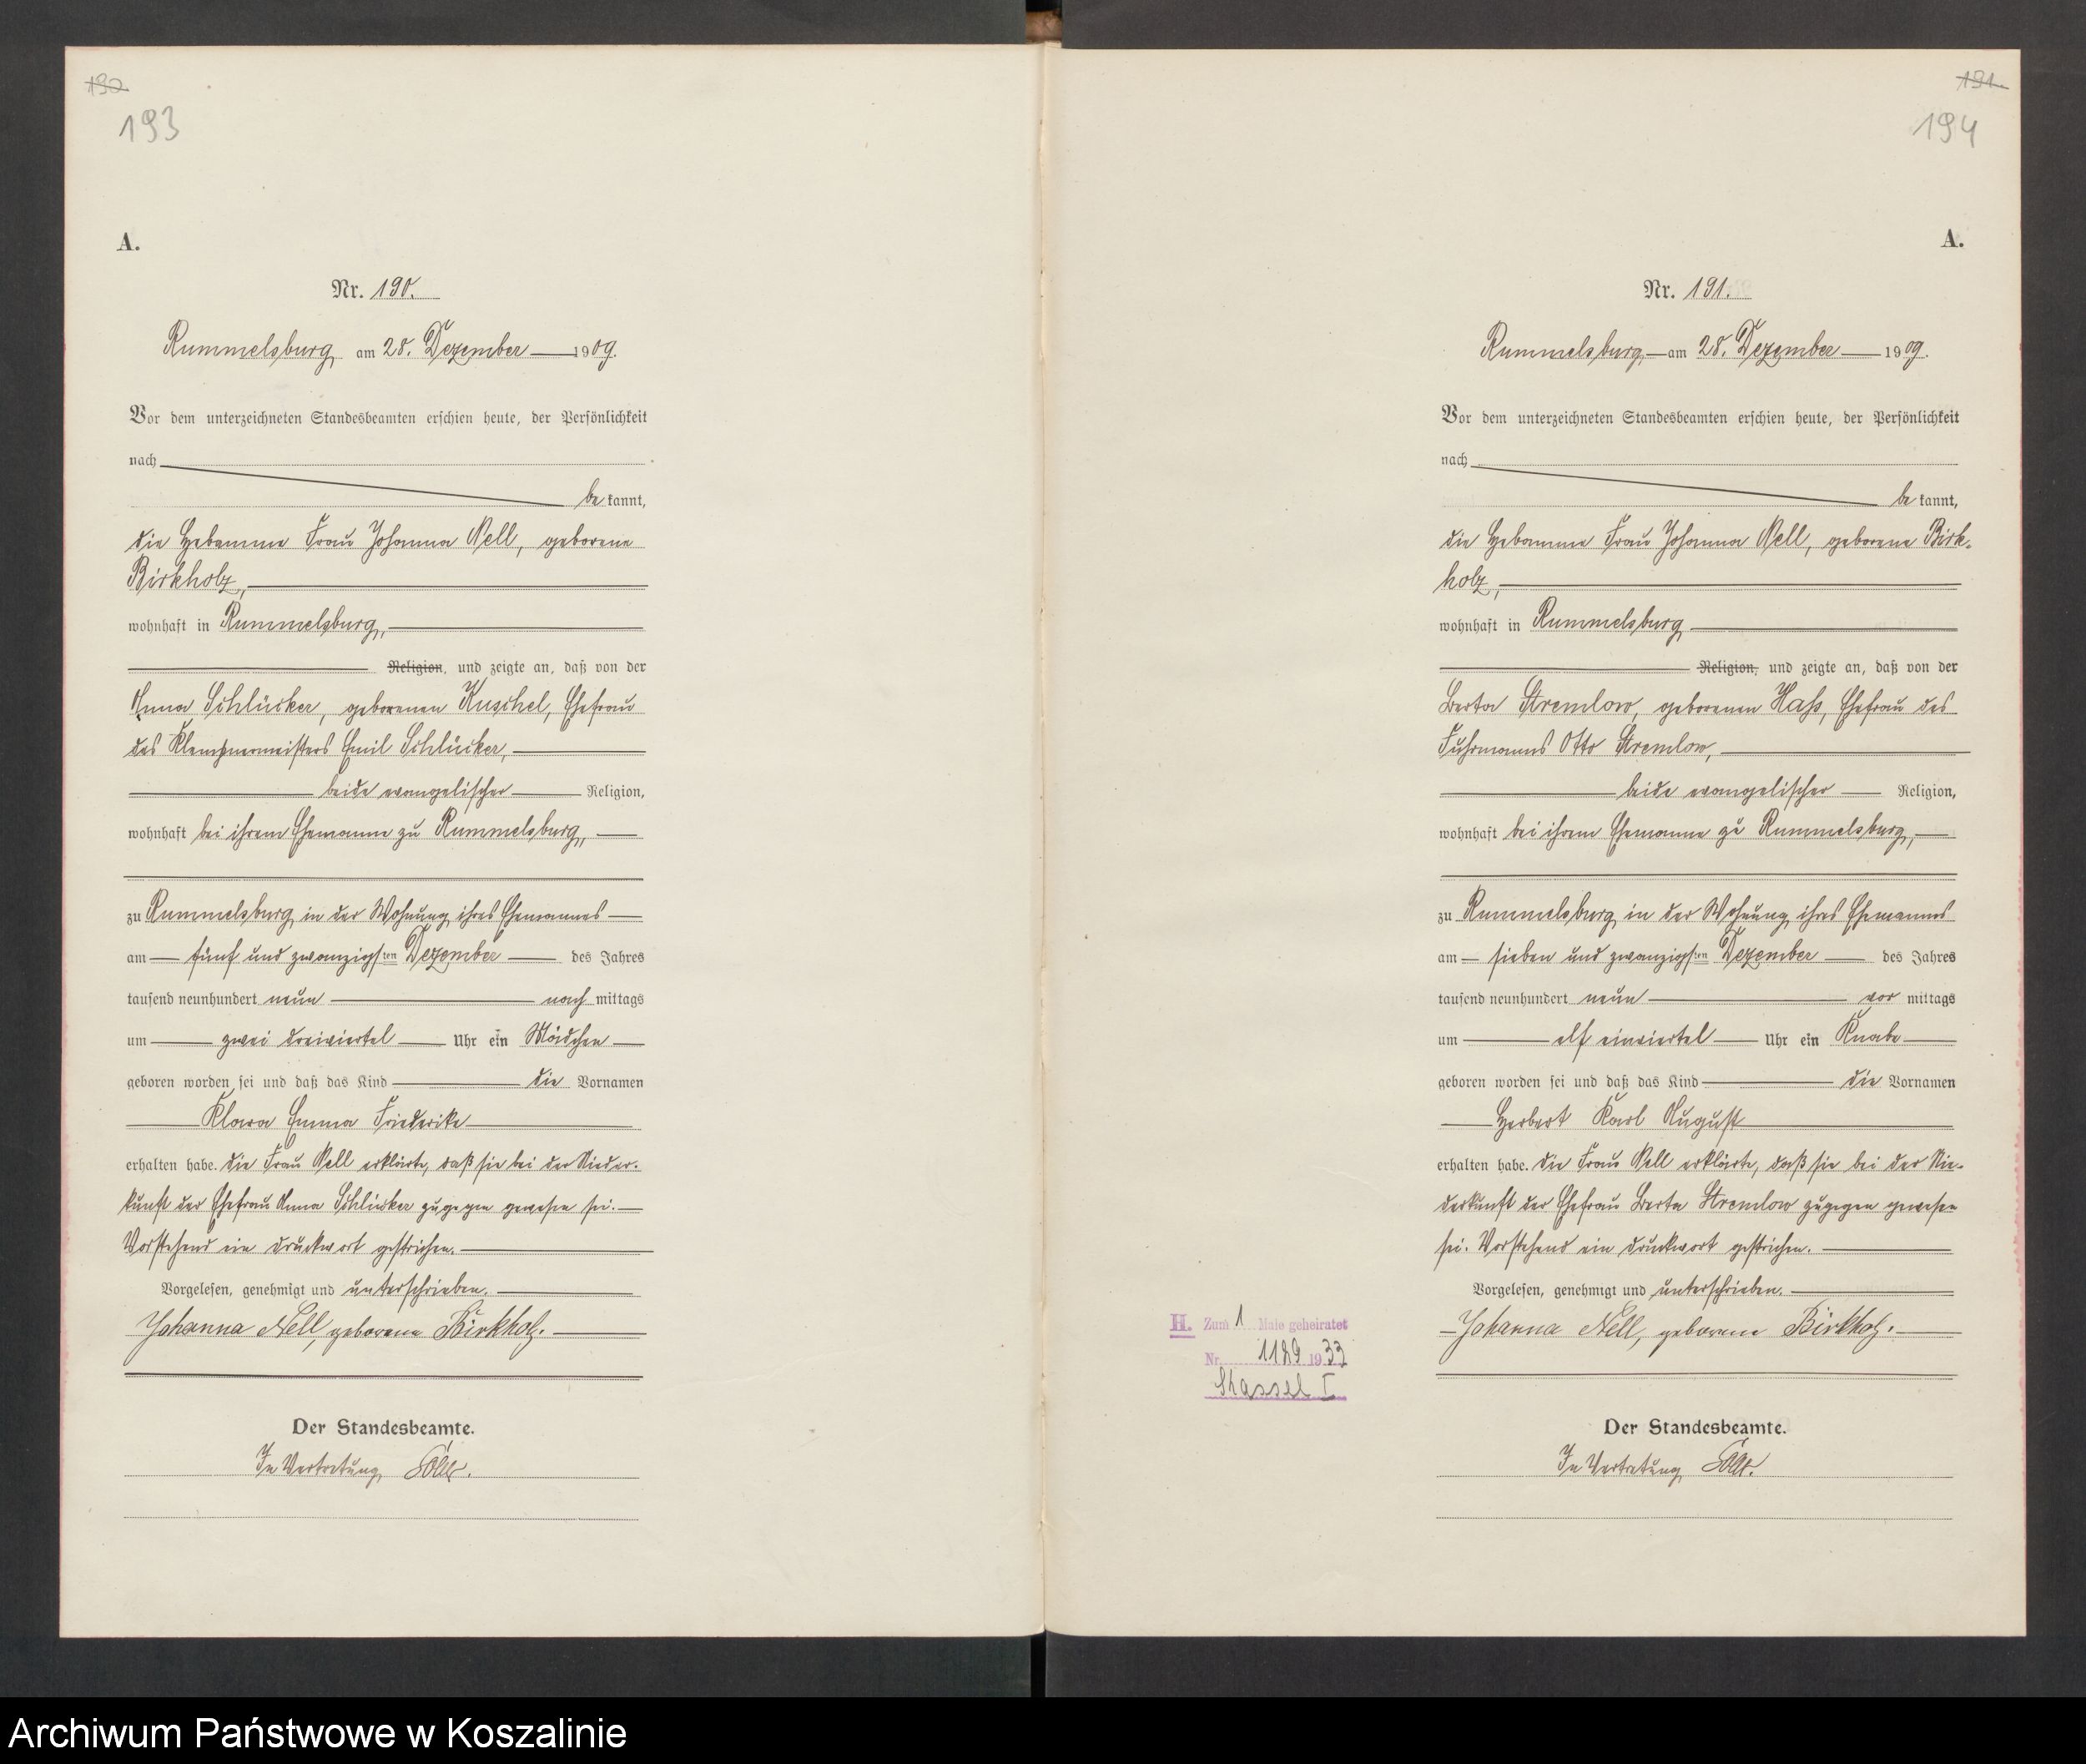 190
193
A.
Nr. 190.
Rummelsburg am 28. Dezember 1909.
Vor dem unterzeichneten Standesbeamten erschien heute, der Persönlichkeit
nach
be kannt,
die Hebamme Frau Johanna Nell, geborene
Birkholz,
wohnhaft in Rummelsburg,
Religion, und zeigte an, daß von der
Anna Schlücker, geborenen Kuschel, Ehefrau
des Klempnermeisters Emil Schlücker,
beide evangelischer Religion,
wohnhaft bei ihrem Ehemanne zu Rummelsburg,
zu Rummelsburg in der Wohnung ihres Ehemannes
am fünf und zwanzigsten Dezember des Jahres
tausend neunhundert neun nach mittags
um zwei dreiviertel Uhr ein Mädchen
geboren worden sei und daß das Kind die Vornamen
Klara Emma Friederike
erhalten habe. Die Frau Nell erklärte, daß sie bei der Nieder-
kunft der Ehefrau Anna Schlücker zugegen gewesen sei.
Vorstehend ein Druckwort gestrichen.
Vorgelesen, genehmigt und unterschrieben.
Johanna Nell, geborene Birkholz.
Der Standesbeamte.
In Vertretung
191
194
A.
Nr. 191.
Rummelsburg am 28. Dezember 1909.
Vor dem unterzeichneten Standesbeamten erschien heute, der Persönlichkeit
nach
be kannt,
die Hebamme Frau Johanna Nell, geborene Birk-
holz,
wohnhaft in Rummelsburg
Religion, und zeigte an, daß von der
Berta Stremlow, geborenen Hass, Ehefrau des
Fuhrmanns Otto Stremlow,
beide evangelischer Religion,
wohnhaft bei ihrem Ehemanne zu Rummelsburg,
zu Rummelsburg in der Wohnung ihres Ehemannes
am sieben und zwanzigsten Dezember des Jahres
tausend neunhundert neun vor mittags
um elf einviertel Uhr ein Knabe
geboren worden sei und daß das Kind die Vornamen
Herbert Karl August
erhalten habe. Die Frau Nell erklärte, daß sie bei der Nie-
derkunft der Ehefrau Berta Stremlow zugegen gewesen
sei. Vorstehend ein Druckwort gestrichen.
Vorgelesen, genehmigt und unterschrieben.
Johanna Nell, geborene Birkholz.
H. Zum 1 Male geheiratet
Nr. 1129 1933
Kassel I
Der Standesbeamte.
In Vertretung
Archiwum Państwowe w Koszalinie